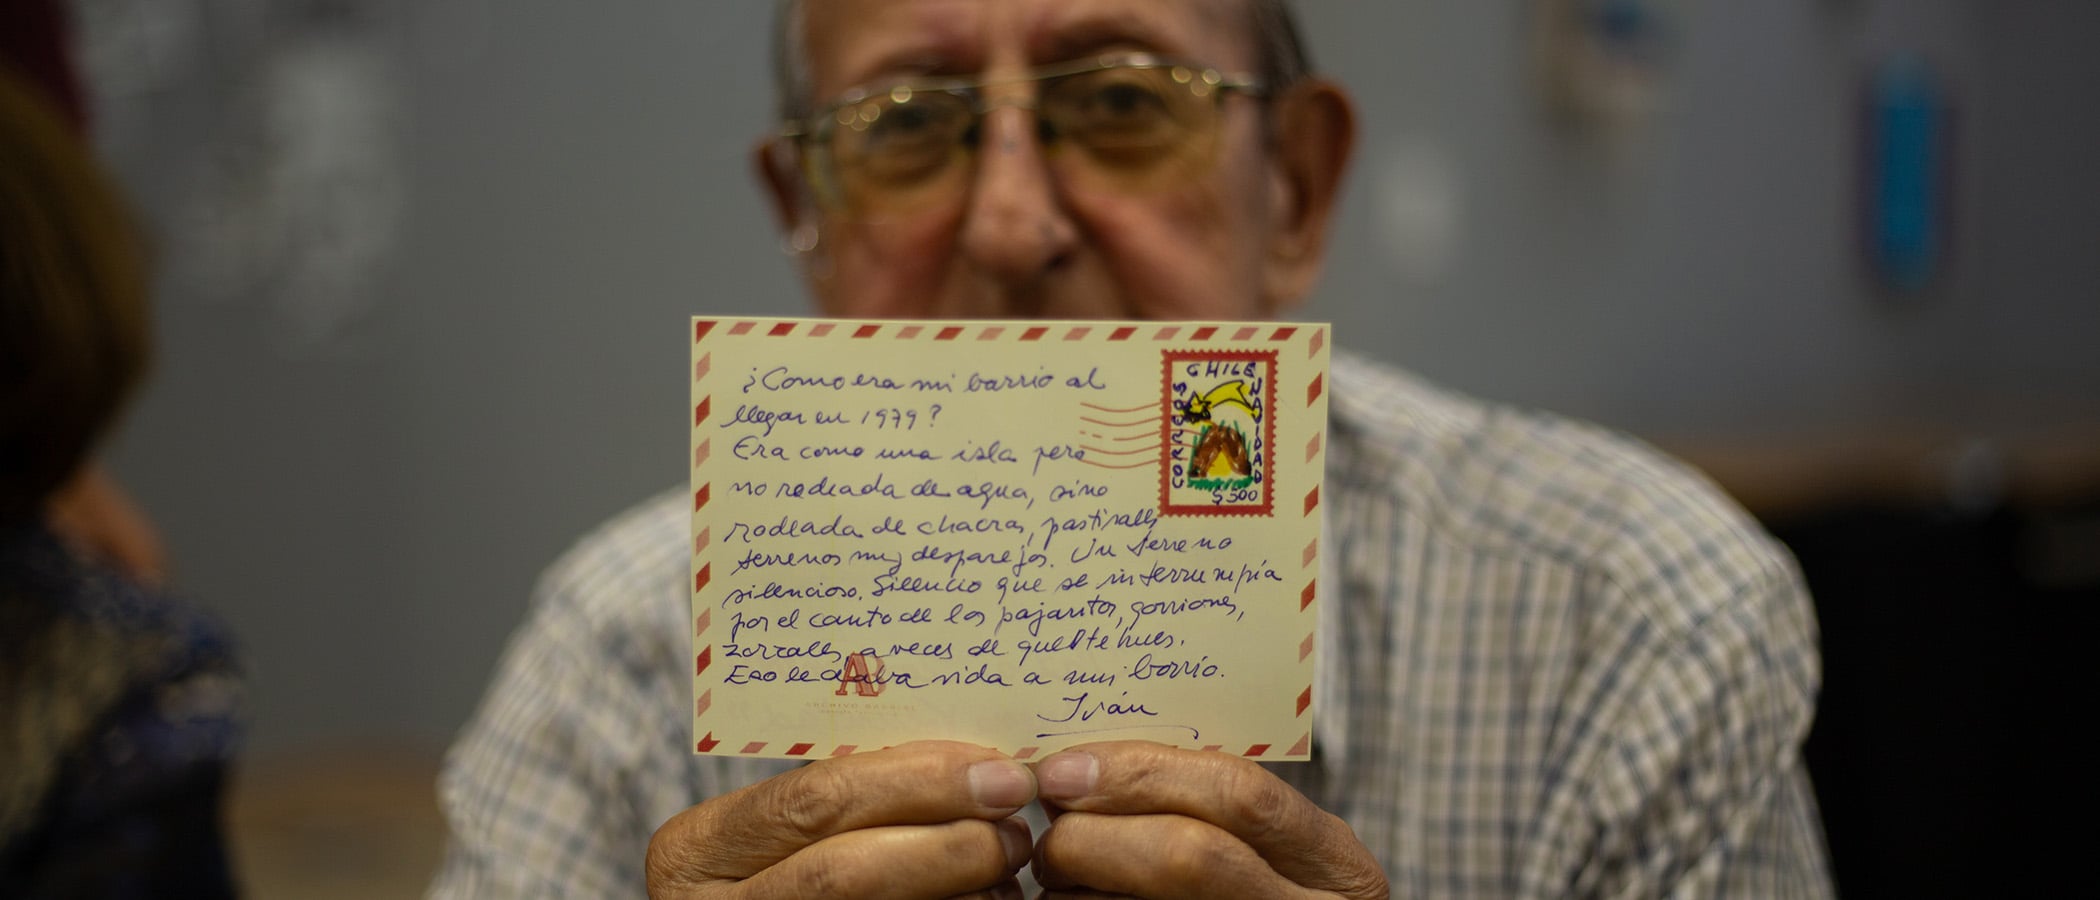 ¿Como era mi barrio al
llegar en 1979?
Era como una isla pero
no rodeada de agua, sino
rodeada de chacras, pastizales
terrenos muy disparejos. Un terreno
silencioso. Silencio que se interrumpía
por el canto de los pajaritos, gorriones,
zorzales, a veces de queltehues.
Eso le daba vida a mi barrio.
Iván
CORREOS CHILE NAVIDAD
$500
AB
ARCHIVO BARRIAL